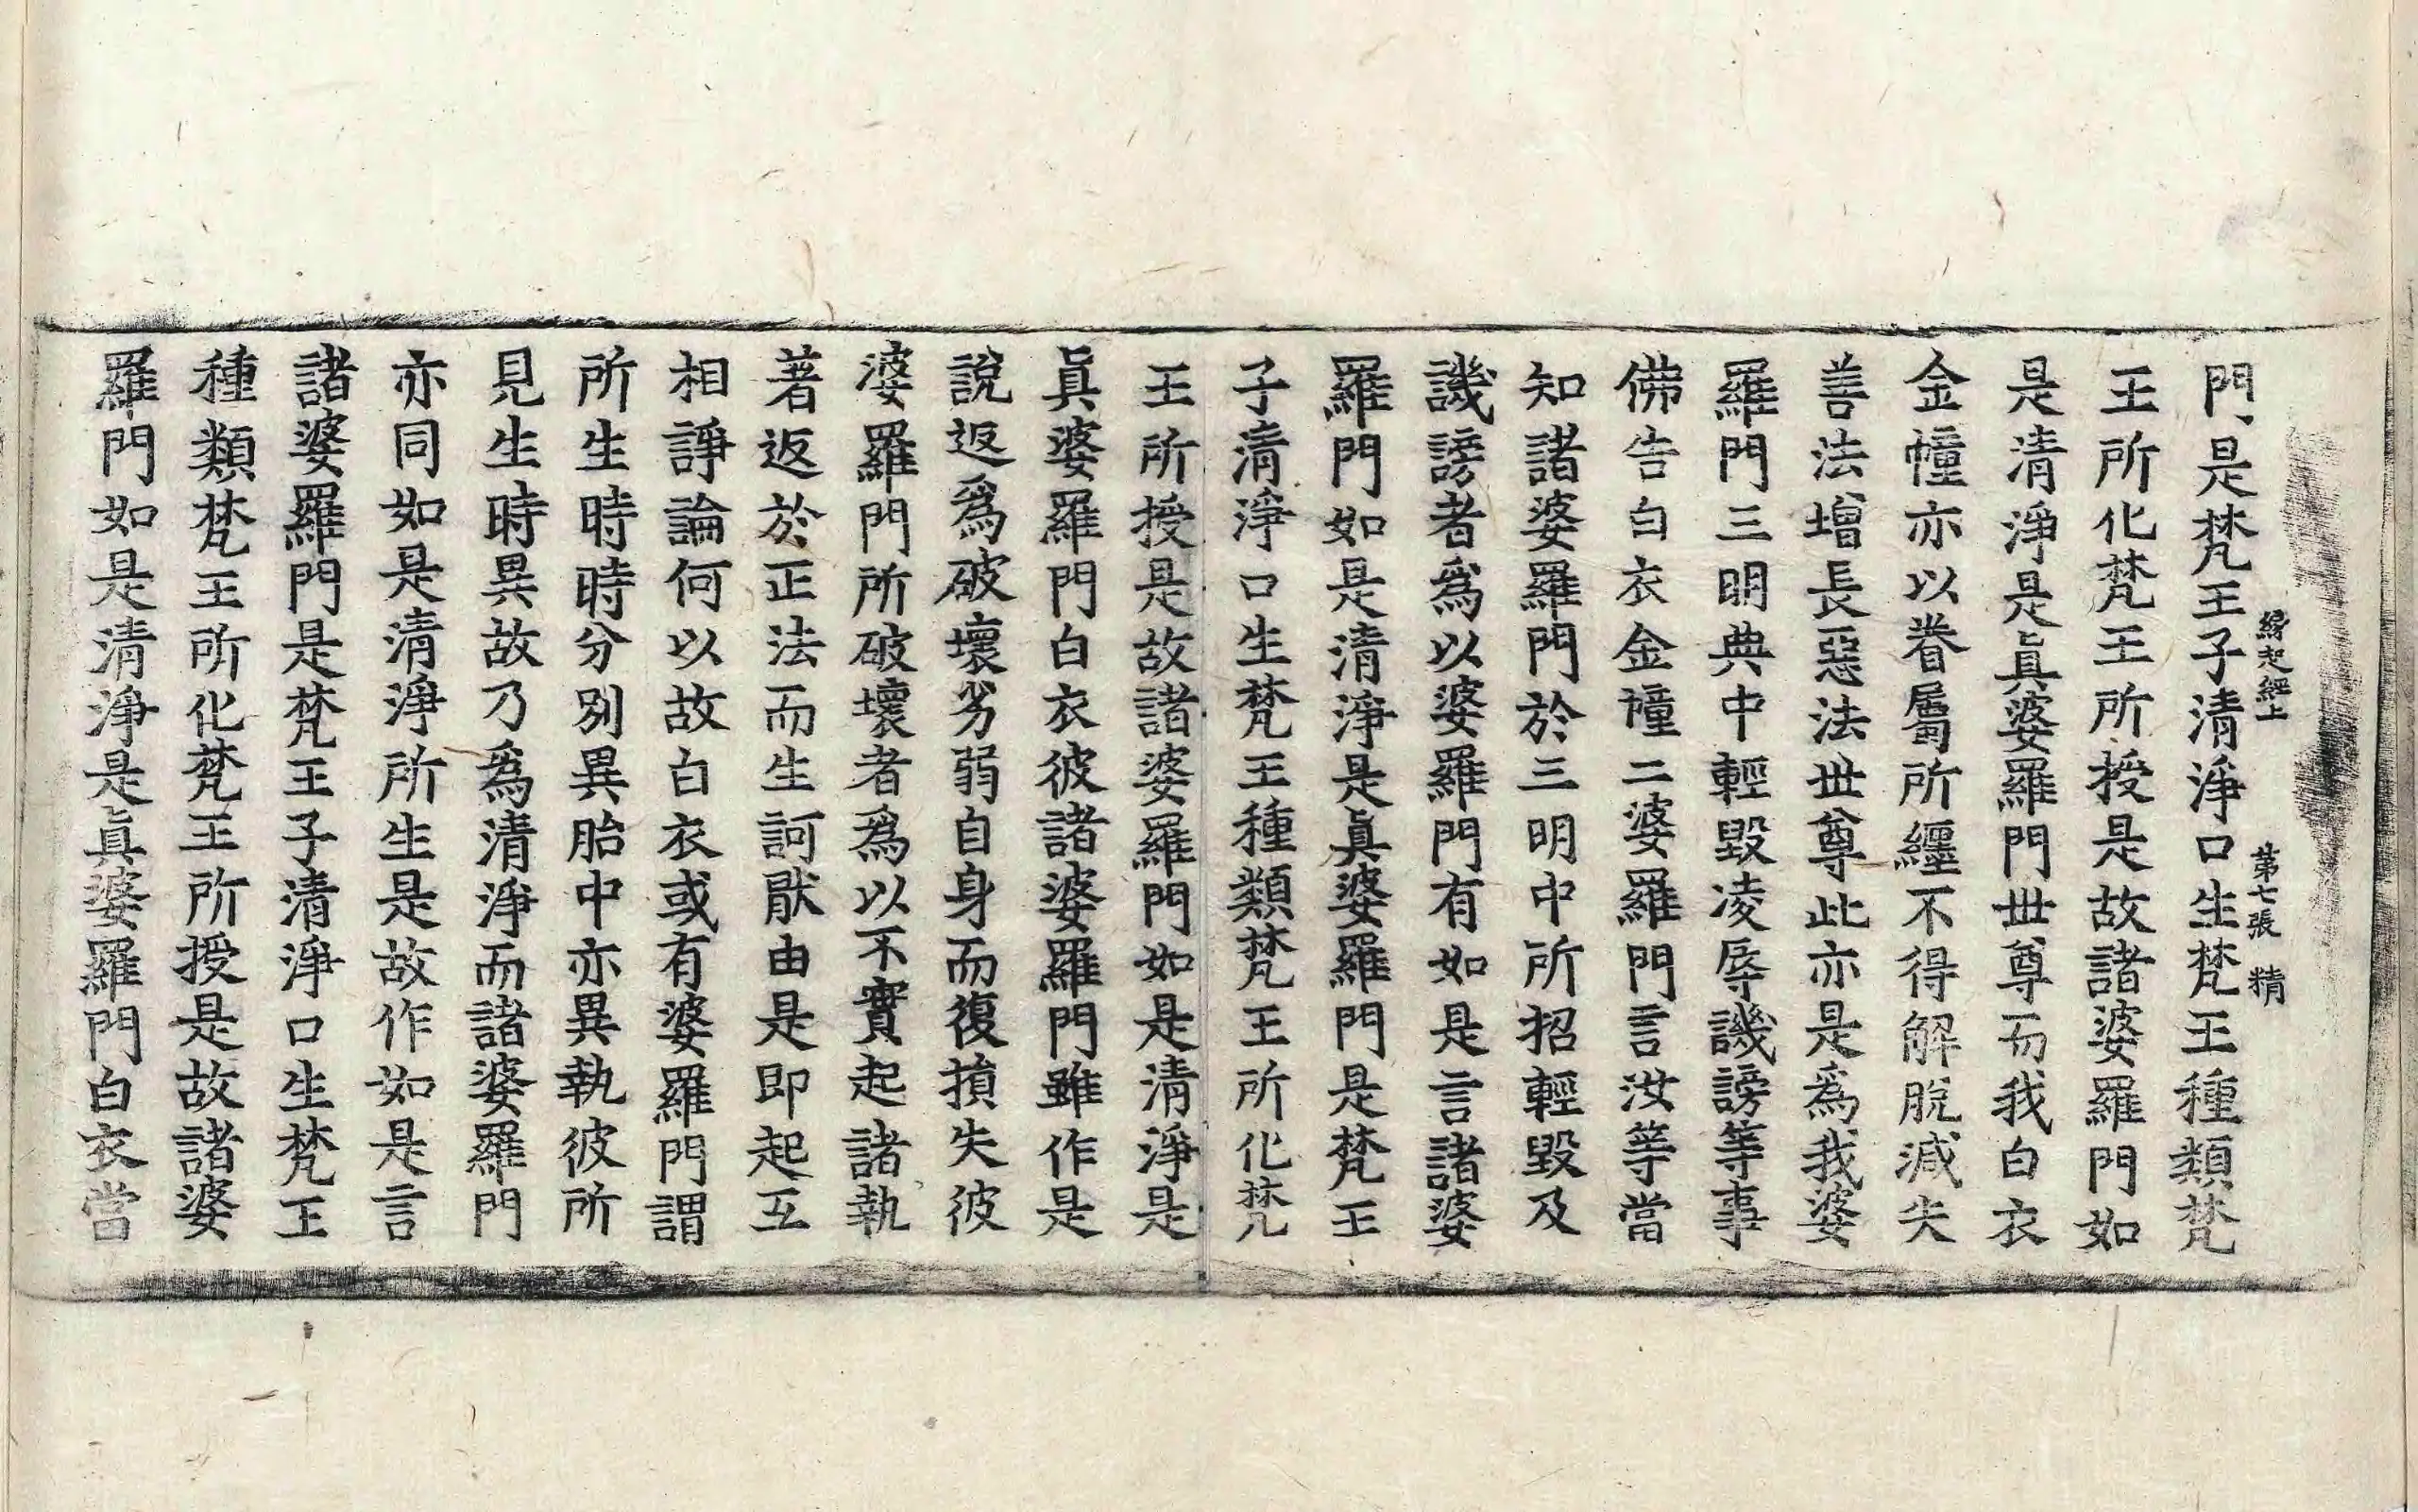 緣起經上 第七張 精
門是梵王子清淨口生梵王種類梵
王所化梵王所授是故諸婆羅門如
是清淨是眞婆羅門世尊而我白衣
金幢亦以眷屬所纏不得解脫減失
善法增長惡法世尊此亦是爲我婆
羅門三明典中輕毀凌辱譏謗等事
佛告白衣金幢二婆羅門言汝等當
知諸婆羅門於三明中所招輕毀及
譏謗者爲以婆羅門有如是言諸婆
羅門如是清淨是眞婆羅門是梵王
子清淨口生梵王種類梵王所化梵
王所授是故諸婆羅門如是清淨是
眞婆羅門白衣彼諸婆羅門雖作是
說返爲破壞劣弱自身而復損失彼
婆羅門所破壞者爲以不實起諸執
著返於正法而生訶猒由是即起互
相諍論何以故白衣或有婆羅門謂
所生時時分別異胎中亦異執彼所
見生時異故乃爲清淨而諸婆羅門
亦同如是清淨所生是故作如是言
諸婆羅門是梵王子清淨口生梵王
種類梵王所化梵王所授是故諸婆
羅門如是清淨是眞婆羅門白衣當